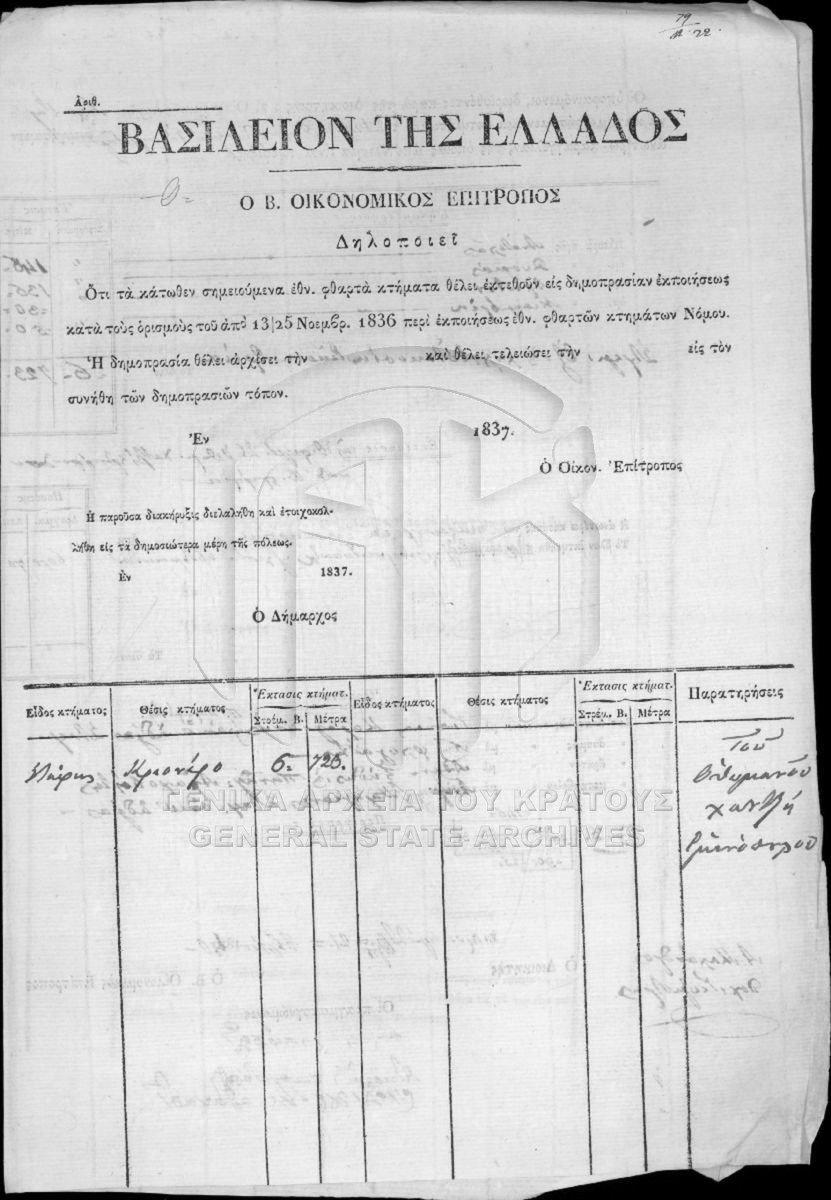 79
22
Ἀριθ.
ΒΑΣΙΛΕΙΟΝ ΤΗΣ ΕΛΛΑΔΟΣ
Ο Β. ΟΙΚΟΝΟΜΙΚΟΣ ΕΠΙΤΡΟΠΟΣ
Δηλοποιεῖ
Ὅτι τὰ κάτωθεν σημειούμενα ἐθν. φθαρτὰ κτήματα θέλει ἐκτεθοῦν εἰς δημοπρασίαν ἐκποιήσεως
κατὰ τοὺς ὁρισμοὺς τοῦ ἀπὸ 13|25 Νοεμβρ. 1836 περὶ ἐκποιήσεως ἐθν. φθαρτῶν κτημάτων Νόμου.
Ἡ δημοπρασία θέλει ἀρχίσει τὴν καὶ θέλει τελειώσει τὴν εἰς τὸν
συνήθη τῶν δημοπρασιῶν τόπον.
Ἐν 1837.
Ὁ Οἰκον. Ἐπίτροπος
Ἡ παροῦσα διακήρυξις διελαλήθη καὶ ἐτοιχοκολ-
λήθη εἰς τὰ δημοσιώτερα μέρη τῆς πόλεως.
Ἐν 1837.
Ὁ Δήμαρχος
Εἶδος κτήματος Θέσις κτήματος Ἔκτασις κτήματ. Εἶδος κτήματος Θέσις κτήματος Ἔκτασις κτήματ. Παρατηρήσεις
Στρέμ. Β. Μέτρα Στρέμ. Β. Μέτρα
Κριονέρο 6. 723. Τοῦ
Ὀθωμανοῦ
χατζῆ
ΓΕΝΙΚΑ ΑΡΧΕΙΑ ΤΟΥ ΚΡΑΤΟΥΣ
GENERAL STATE ARCHIVES